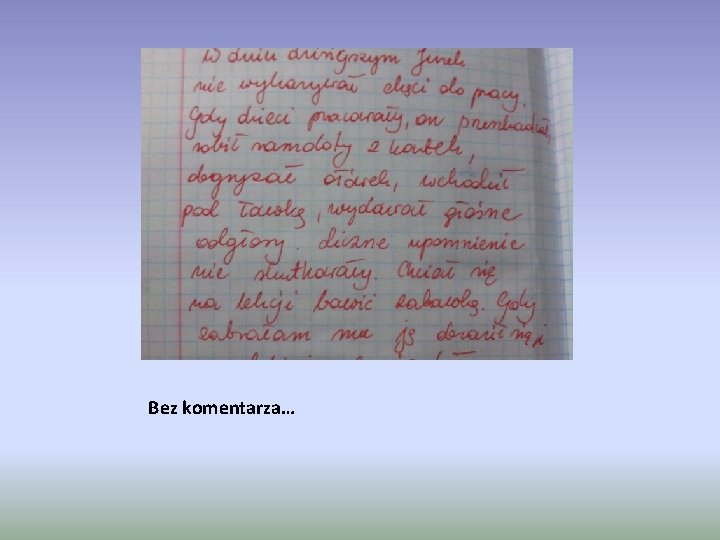 W dniu dzisiejszym Jurek
nie wykazywał chęci do pracy.
Gdy dzieci pracowały, on przeszkadzał,
robił samoloty z kartek,
obgryzał ołówek, wchodził
pod ławkę, wydawał głośne
odgłosy. Liczne upomnienie
nie skutkowały. Chciał się
na lekcji bawić zabawką. Gdy
zabrałam mu ją obraził się i
Bez komentarza...